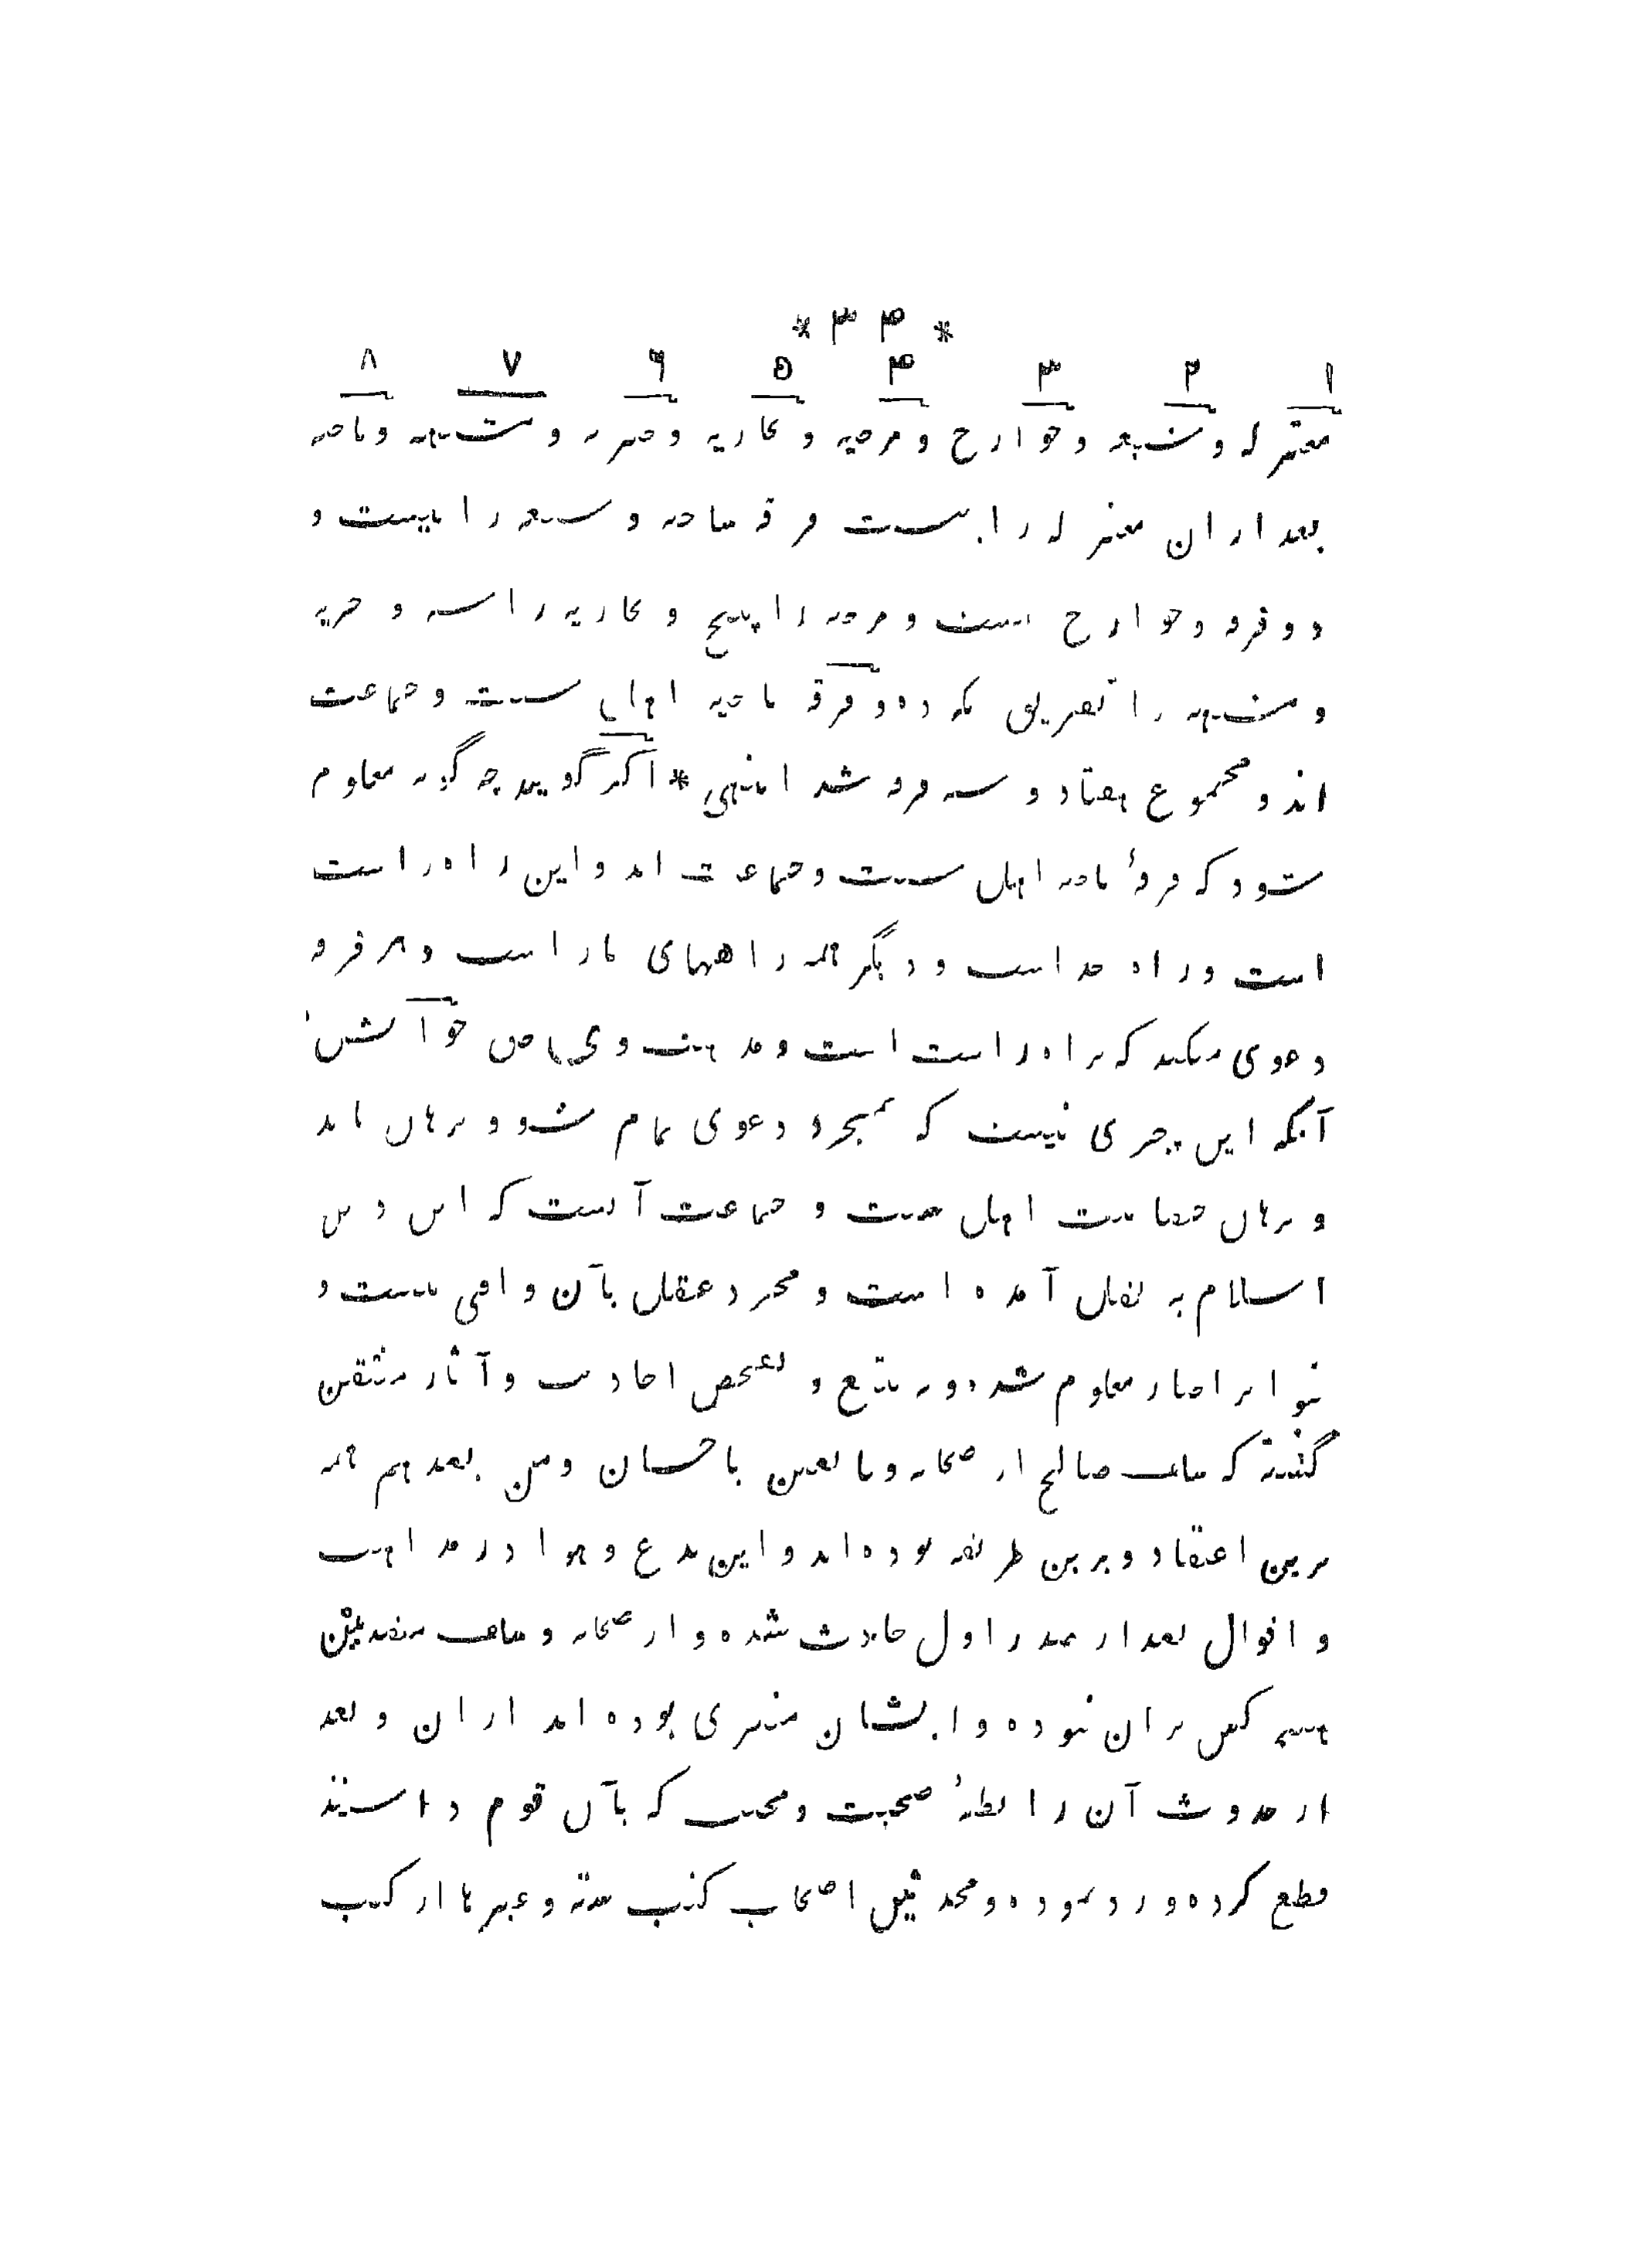 * ۳۴ *
۱ ۲ ۳ ۴ ۵ ۶ ۷ ۸
معتزله و شیعه و خوارج و مرجیه و نجاریه و جبریه و مشبهه و ناجیه
بعد ازان معتزله را بیست فرقه ساخته و شیعه را بیست و
دو فرقه و خوارج بیست و مرجیه را پنج و نجاریه را سه و جبریه
و مشبهه را تفریق نکرده و فرقه ناجیه اهل سنت و جماعت
اند و مجموع هفتاد و سه فرقه شد انتهی * اگر گویند چه گونه معلوم
شود که فرقهٔ ناجیه اهل سنت و جماعت اند و این راه راست
است و راه خداست و دیگر همه راههای نار است و هر فرقه
دعوی میکند که براه راست است و مذهب وی حق جوابش
آنکه این چیزی نیست که بمجرد دعوی تمام شود برهان باید
و برهان حقانیت اهل سنت و جماعت آنست که این دین
اسلام به نقل آمده است و مجرد عقل بآن وافی نیست و
بتواتر اخبار معلوم شده و به تتبع و تفحص احادیث و آثار متیقن
گشته که سلف صالح از صحابه و تابعین باحسان و من بعدهم همه
برین اعتقاد و برین طریقه بوده اند و این بدع و هوا در مذاهب
و اقوال بعد از صدر اول حادث شده و از صحابه و سلف متقدمین
هیچ کس بران نبوده و ایشان متبری بوده اند ازان و بعد
از حدوث آن رابطهٔ صحبت و محبت که بآن قوم داشتند
قطع کرده و رد نموده و محدثین اصحاب کتب سته و غیرها از کتب